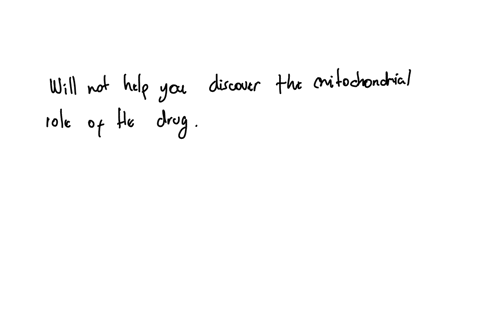 Will not help you discover the mitochondrial
role of the drug.